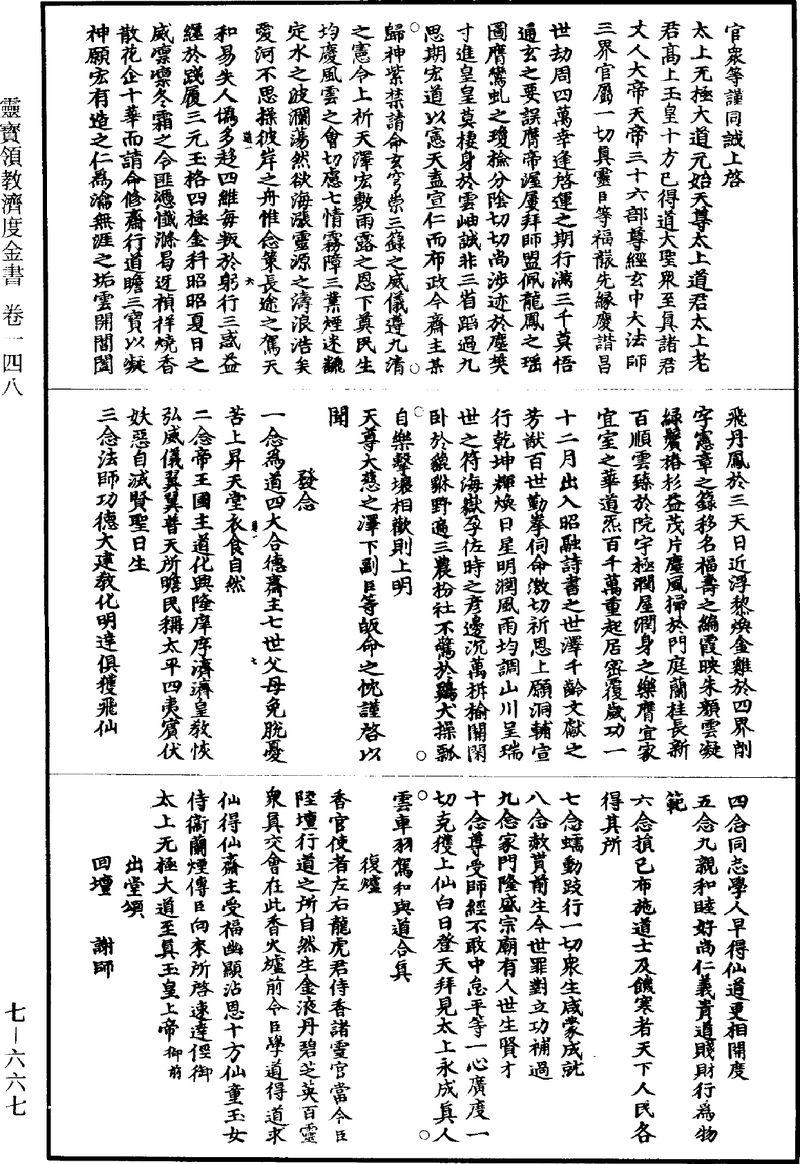 官衆等謹同誠上啓
太上无極大道元始天尊太上道君太上老
君高上玉皇十方已得道大聖衆至真諸君
丈人大帝天帝三十六部尊經玄中大法師
三界官屬一切真靈臣等福蔭先緣慶諧昌
世劫周四萬幸逢啓運之期行滿三千莫悟
通玄之要誤膺帝渥屢拜師盟佩龍鳳之瑶
圖膺鸞虬之瓊檢分陰切切尚涉迹於塵樊
寸進皇皇莫棲身於雲岫誠非三省蹈過九
思期宏道以憲天盍宣仁而布政今齋主某
歸神紫禁請命玄穹崇三籙之威儀遵九清
之憲令上祈天澤宏敷雨露之恩下奠民生
均慶風雲之會切慮七情霧障三業煙迷觀
定水之波瀾蕩然欲海漲靈源之濤浪浩矣
愛河不思操彼岸之舟惟念策長途之駕天
和易失人僞多趍四維每叛於躬行三惑益
經於踐履三元玉格四極金科昭昭夏日之
威凛凛冬霜之令匪憑懺滌曷迓禎祥燒香
散花企十華而請命修齋行道瞻三寶以凝
神願宏有造之仁爲瀹無涯之垢雲開閶闔
飛丹鳳於三天日近浮黎煥金雞於四界削
字憲章之籙移名福壽之編霞映朱顏雲凝
綠鬢椿杉益茂片塵風掃於門庭蘭桂長新
百順雲臻於院宇極潤屋潤身之樂膺宜家
宜室之華道炁百千萬重起居密覆歲功一
十二月出入昭融詩書之世澤千齡文獻之
芳猷百世勤拳伺命激切祈恩上願洞輔宣
行乾坤輝煥日星明潤風雨均調山川呈瑞
世之符海嶽孕佐時之彥邊沉萬柝榆關閑
卧於貔貅野遍三農枌社不驚於鷄犬操瓢
自樂擊壤相歡則上明
天尊大慈之澤下副臣等皈命之忱謹啓以
聞
發念
一念爲道四大合德齋主七世父母免脫憂
苦上昇天堂衣食自然
二念帝王國主道化興隆庠序濟濟皇教恢
弘威儀翼翼普天所瞻民稱太平四夷賓伏
妖惡自滅賢聖日生
三念法師功德大建教化明達俱獲飛仙
四念同志學人早得仙道更相開度
五念九親和睦好尚仁義貴道賤財行爲物
範
六念損己布施道士及饑寒者天下人民各
得其所
七念蠕動跂行一切衆生咸蒙成就
八念赦貰前生今世罪對立功補過
九念家門隆盛宗廟有人世生賢才
十念尊受師經不敢中怠平等一心廣度一
切克獲上仙白日登天拜見太上永成真人
雲車羽駕和與道合真
復爐
香官使者左右龍虎君侍香諸靈官當令臣
陞壇行道之所自然生金液丹碧芝英百靈
衆真交會在此香火爐前令臣學道得道求
仙得仙齋主受福幽顯沾恩十方仙童玉女
侍衛蘭煙傳臣向來所啓速達徑御
太上无極大道至真玉皇上帝御前
出堂頌
回壇 謝師
靈寶領教濟度金書 卷一四八
七—六六七